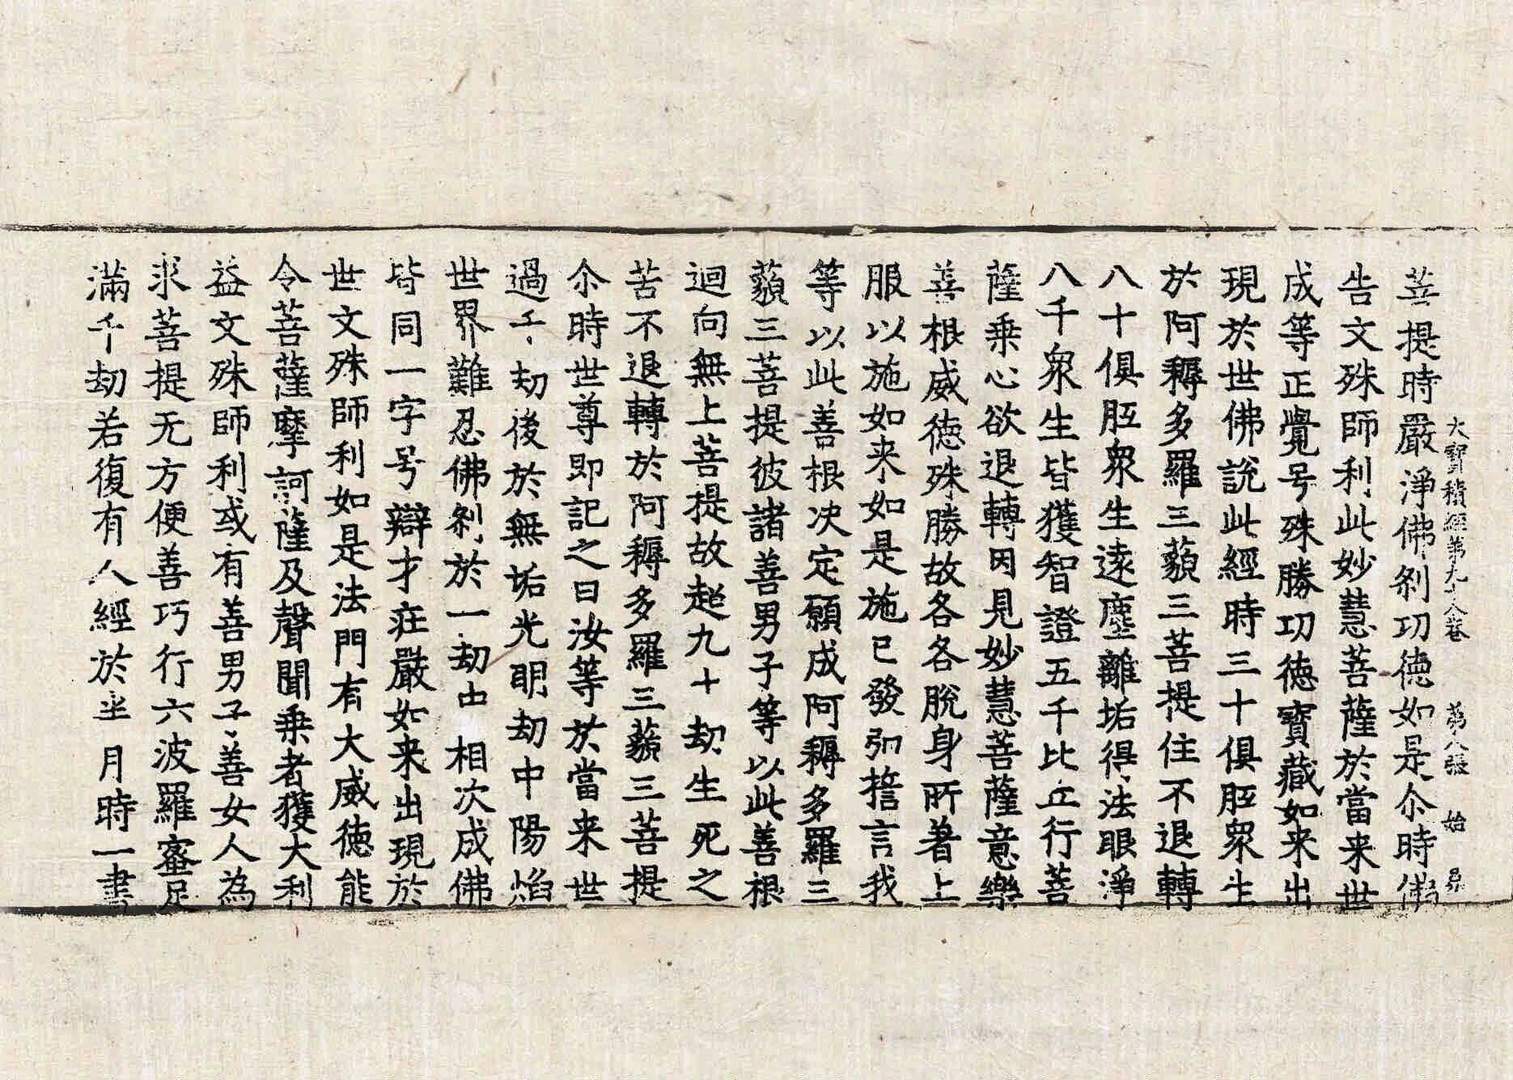 大寶積經第九十八卷 第八張 始
菩提時嚴淨佛刹功德如是尒時佛
告文殊師利此妙慧菩薩於當来世
成等正覺号殊勝功德寶藏如来出
現於世佛說此經時三十俱胝衆生
於阿耨多羅三藐三菩提住不退轉
八十俱胝衆生遠塵離垢得法眼淨
八千衆生皆獲智證五千比丘行菩
薩乗心欲退轉因見妙慧菩薩意樂
善根威德殊勝故各各脫身所著上
服以施如来如是施已發弘誓言我
等以此善根决定願成阿耨多羅三
藐三菩提彼諸善男子等以此善根
迴向無上菩提故超九十劫生死之
苦不退轉於阿耨多羅三藐三菩提
尒時世尊即記之曰汝等於當来世
過千劫後於無垢光明劫中陽焰
世界難忍佛刹於一劫中相次成佛
皆同一字号辯才莊嚴如来出現於
世文殊師利如是法門有大威德能
令菩薩摩訶薩及聲聞乗者獲大利
益文殊師利或有善男子善女人為
求菩提无方便善巧行六波羅蜜足
滿千劫若復有人經於半月時一書